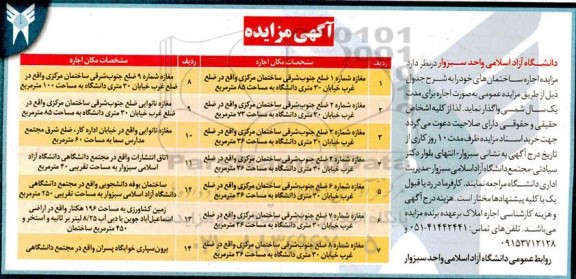 آگهی مزایده
دانشگاه آزاد اسلامی واحد سبزوار درنظر دارد
مزایده اجاره ساختمان‌های خود را به شرح جدول
ذیل از طریق مزایده عمومی به صورت اجاره برای مدت
یک سال شمسی واگذار نماید. لذا از کلیه اشخاص
حقیقی و حقوقی دارای صلاحیت دعوت می گردد
جهت خرید اسناد مزایده ظرف مدت ۱۰ روز کاری از
تاریخ درج آگهی به نشانی سبزوار-انتهای بلوار دکتر
سیادتی-مجتمع دانشگاه آزاد اسلامی سبزوار-مدیریت
اداری دانشگاه مراجعه نمایند. کارفرما در رد یا قبول
یک یا کلیه پیشنهادها مختار است. هزینه درج آگهی
و هزینه کارشناسی اجاره املاک برعهده برنده مزایده
می‌باشد. تلفن‌های تماس: ۴۱۴۴۲۴۴۱-۰۵۱ و
۰۹۱۵۳۷۱۲۱۲۸
روابط عمومی دانشگاه آزاد اسلامی واحد سبزوار
ردیف مشخصات مکان اجاره
۱ مغازه شماره ۱ ضلع جنوب‌شرقی ساختمان مرکزی واقع در ضلع
غرب خیابان ۳۰ متری دانشگاه به مساحت ۸۵ مترمربع
۲ مغازه شماره ۲ ضلع جنوب‌شرقی ساختمان مرکزی واقع در ضلع
غرب خیابان ۳۰ متری دانشگاه به مساحت ۷۳ مترمربع
۳ مغازه شماره ۳ ضلع جنوب‌شرقی ساختمان مرکزی واقع در ضلع
غرب خیابان ۳۰ متری دانشگاه به مساحت ۳۶ مترمربع
ضلع جنوب‌شرقی ساختمان مرکزی واقع در ضلع
غرب خیابان ۳۰ متری دانشگاه به مساحت ۳۶ مترمربع
۵ مغازه شماره ۶ ضلع جنوب‌شرقی ساختمان مرکزی واقع در ضلع
غرب خیابان ۳۰ متری دانشگاه به مساحت ۳۶ مترمربع
مغازه شماره ۷ ضلع جنوب‌شرقی ساختمان مرکزی واقع در ضلع
غرب خیابان ۳۰ متری دانشگاه به مساحت ۳۶ مترمربع
۷ مغازه شماره ۸ ضلع جنوب‌شرقی ساختمان مرکزی واقع در ضلع
غرب خیابان ۳۰ متری دانشگاه به مساحت ۳۶ مترمربع
ردیف مشخصات مکان اجاره
۸ مغازه شماره ۹ ضلع جنوب‌شرقی ساختمان مرکزی واقع در
ضلع غرب خیابان ۳۰ متری دانشگاه به مساحت ۱۰۰ مترمربع
۹ مغازه نانوایی ضلع جنوب‌شرقی ساختمان مرکزی واقع در ضلع
غرب خیابان ۳۰ متری دانشگاه به مساحت ۸۵ مترمربع
۱۰ مغازه نانوایی واقع در خیابان اداره کار، ضلع شرق مجتمع
مدارس سما به مساحت ۶۰ مترمربع
۱۱ اتاق انتشارات واقع در مجتمع دانشگاهی دانشگاه آزاد
اسلامی سبزوار به مساحت تقریبی ۴۰ مترمربع
۱۲ ساختمان بوفه دانشجویی واقع در مجتمع دانشگاهی
دانشگاه آزاد اسلامی سبزوار به مساحت تقریبی ۲۵۰ مترمربع
۱۳ زمین کشاورزی به مساحت ۱۹۶ هکتار واقع در اراضی
اسماعیل‌آباد جوین با دبی آب ۸/۲۵ لیتر بر ثانیه و استخر و
۴۵۰ مترمربع ساختمان
۱۴ برون‌سپاری خوابگاه پسران واقع در مجتمع دانشگاهی